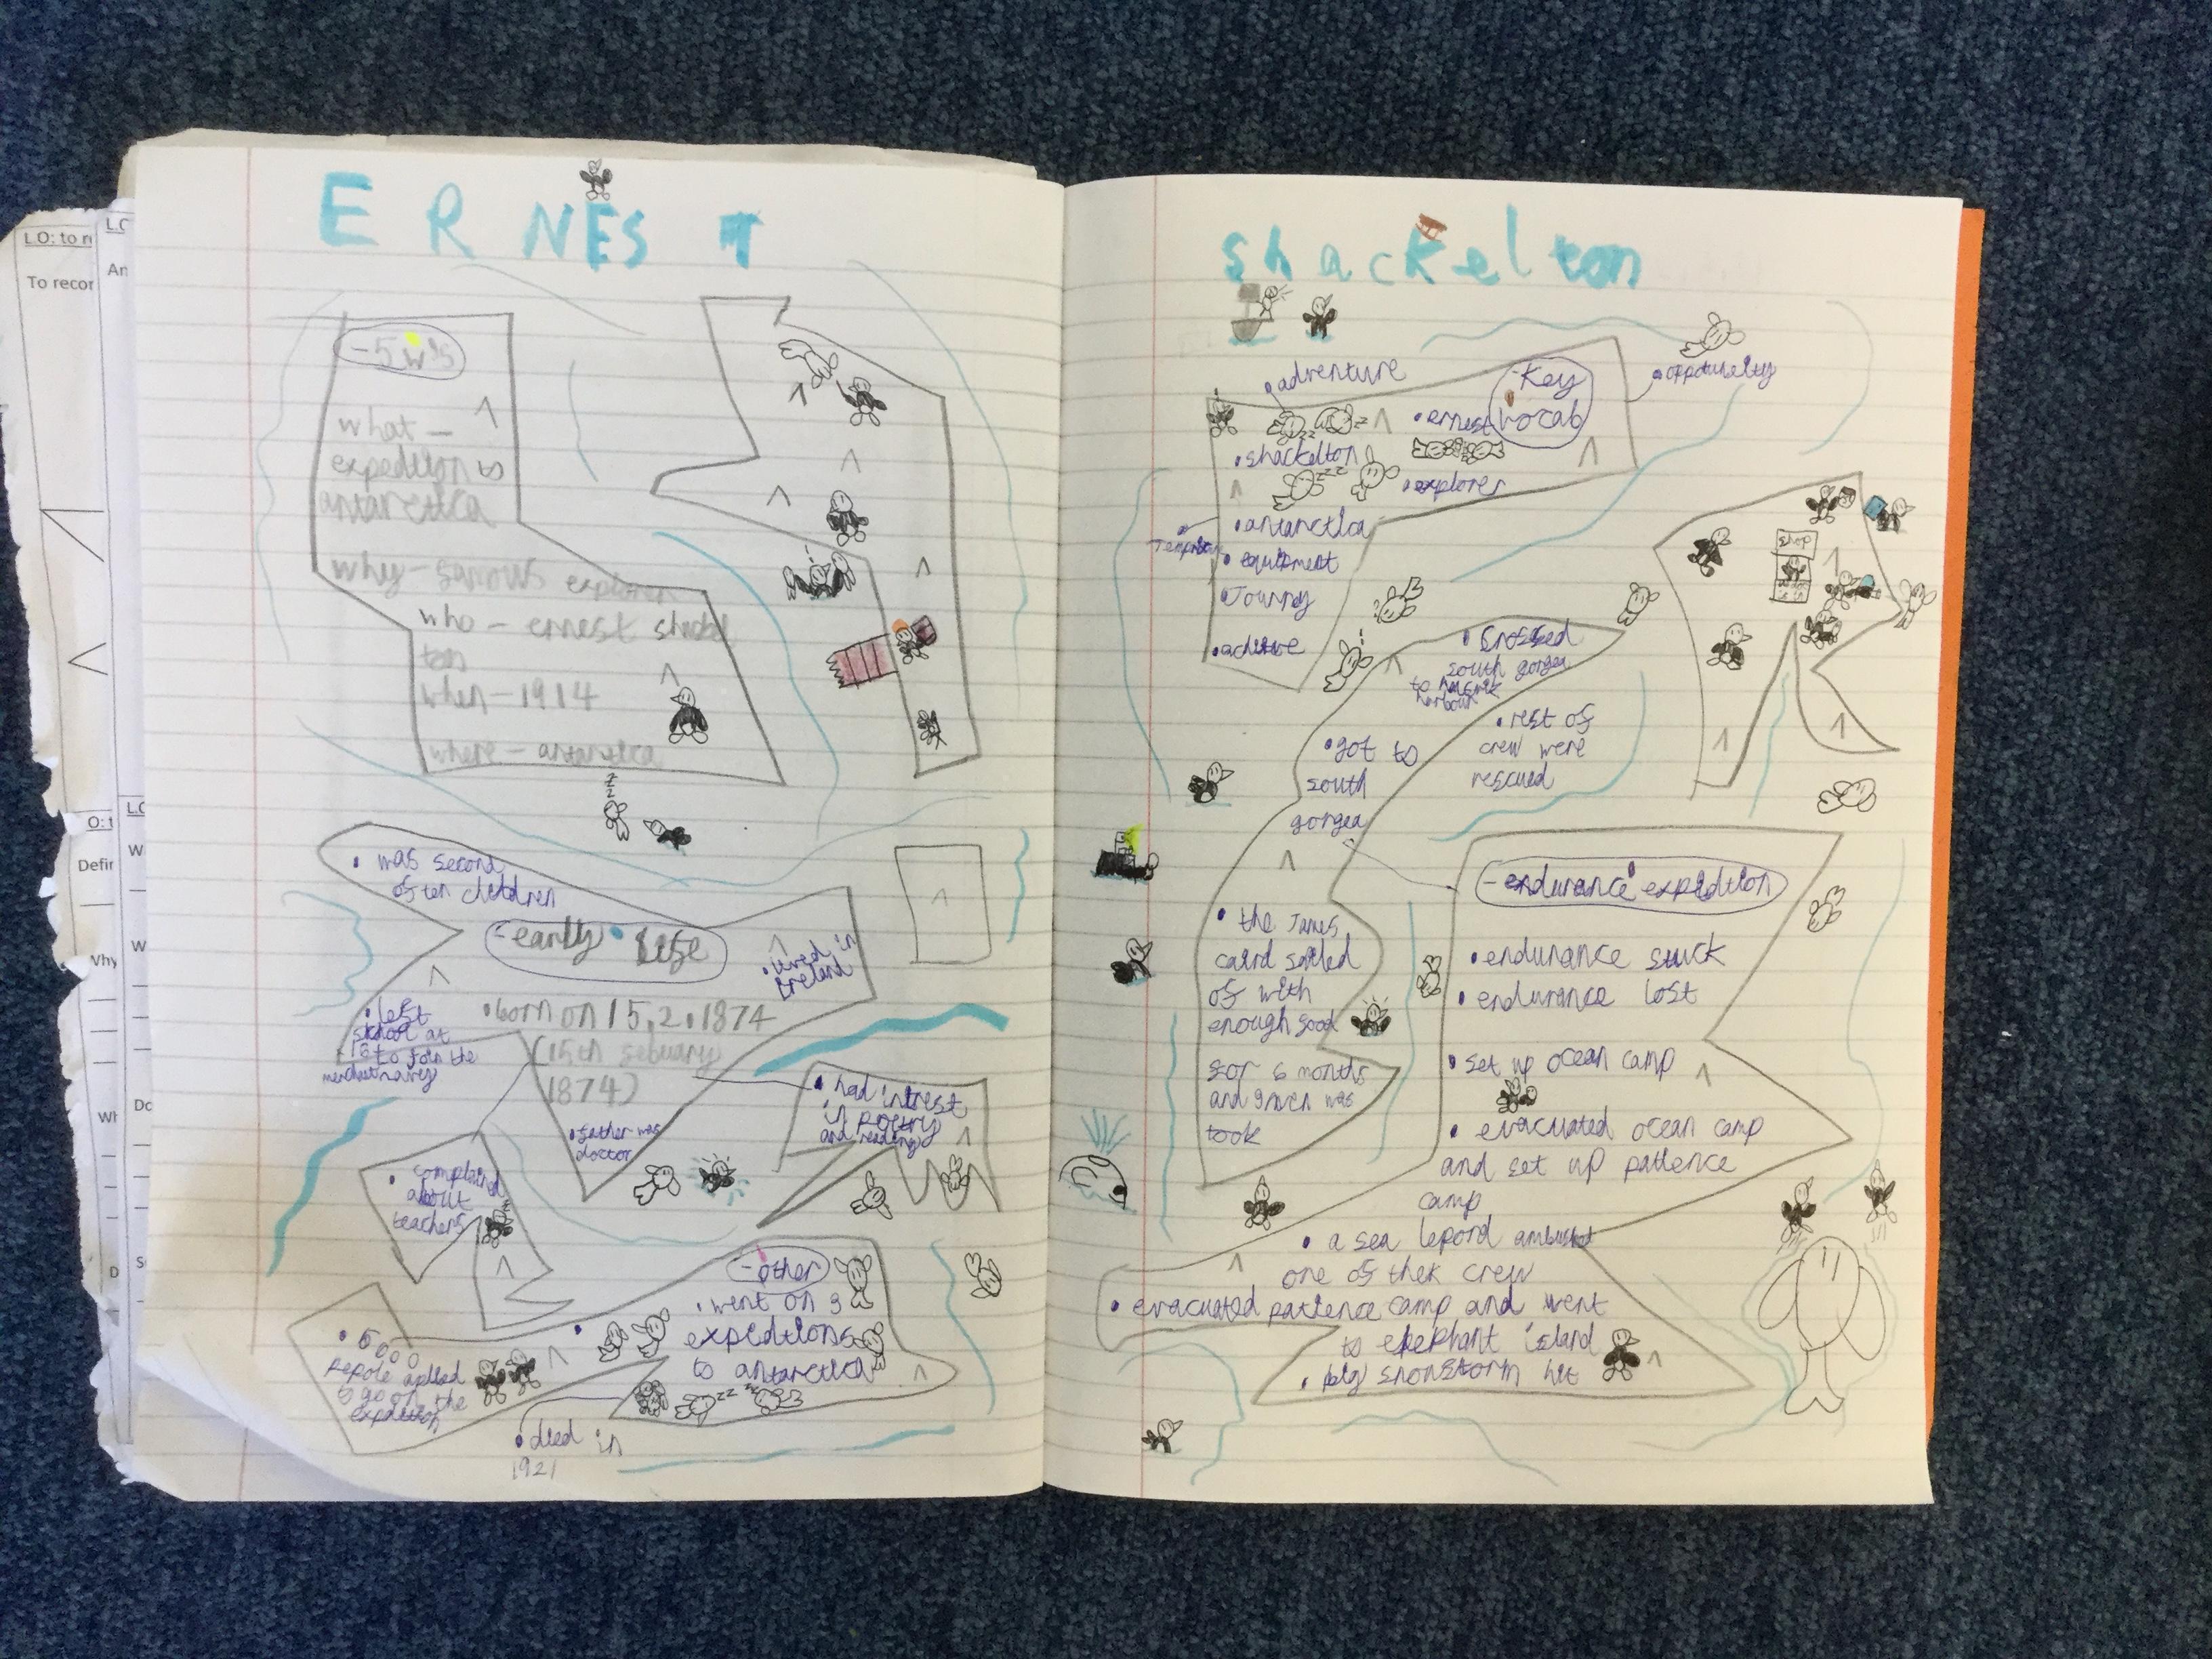 ERNEST
-5w's
what -
expedition to
antarctica
why - famous explorer
who - ernest shackel
ton
when - 1914
where - antarctica
• was second
of ten children
-early life
• lived in
ireland
• left
school at
to join the
merchant navy
• born on 15.2.1874
(15th febuary
1874)
• father was
doctor
• had intrest
in poetry
and reading
• complained
about
teachers
-other
• went on 3
expeditions
to antarctica
• 5000
pepole aplied
to go on the
expedition
• died in
1921
shackelton
Key
vocab
• adventure
• ernest
• shackelton
• explorer
• antarctica
• equipment
• Journey
shop
• crossed
south gorgea
to
harbour
• rest of
crew were
rescued
• got to
south
gorgea
• the James
caird sailed
of with
enough food
for 6 months
and men was
took
-endurance expedition
• endurance stuck
• endurance lost
• set up ocean camp
• evacuated ocean camp
and set up patience
camp
• a sea lepord
one of their crew
• evacuated patience camp and went
to elephant island
• big snowstorm hit
L.O: to r
To recor
L.O
An
O: t
Defin
Why
Wh
D
L.O
W
W
Do
S